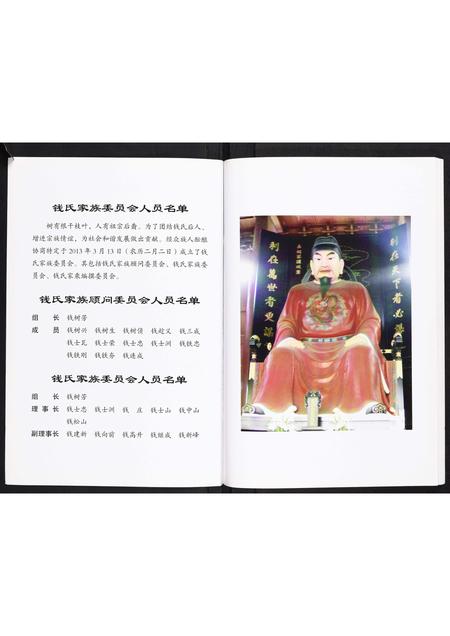 钱氏家族委员会人员名单
树有根干枝叶，人有祖宗后裔。为了团结钱氏后人、
增进宗族情谊，为社会和谐发展做出贡献。经众族人酝酿
协商特定于2013年3月13日（农历二月二日）成立了钱
氏家族委员会。其包括钱氏家族顾问委员会、钱氏家族委
员会、钱氏家乘编撰委员会。
钱氏家族顾问委员会人员名单
组 长 钱树芳
成 员 钱树兴 钱树生 钱树信 钱起义 钱三成
钱士瓦 钱士荣 钱士忠 钱士洲 钱铁忠
钱铁刚 钱铁务 钱连成
钱氏家族委员会人员名单
组 长 钱树芳
理 事 长 钱士忠 钱士洲 钱 庄 钱士山 钱中山
钱松山
副理事长 钱建新 钱向前 钱高升 钱继成 钱新峰
利在天下者必
利在萬世者更